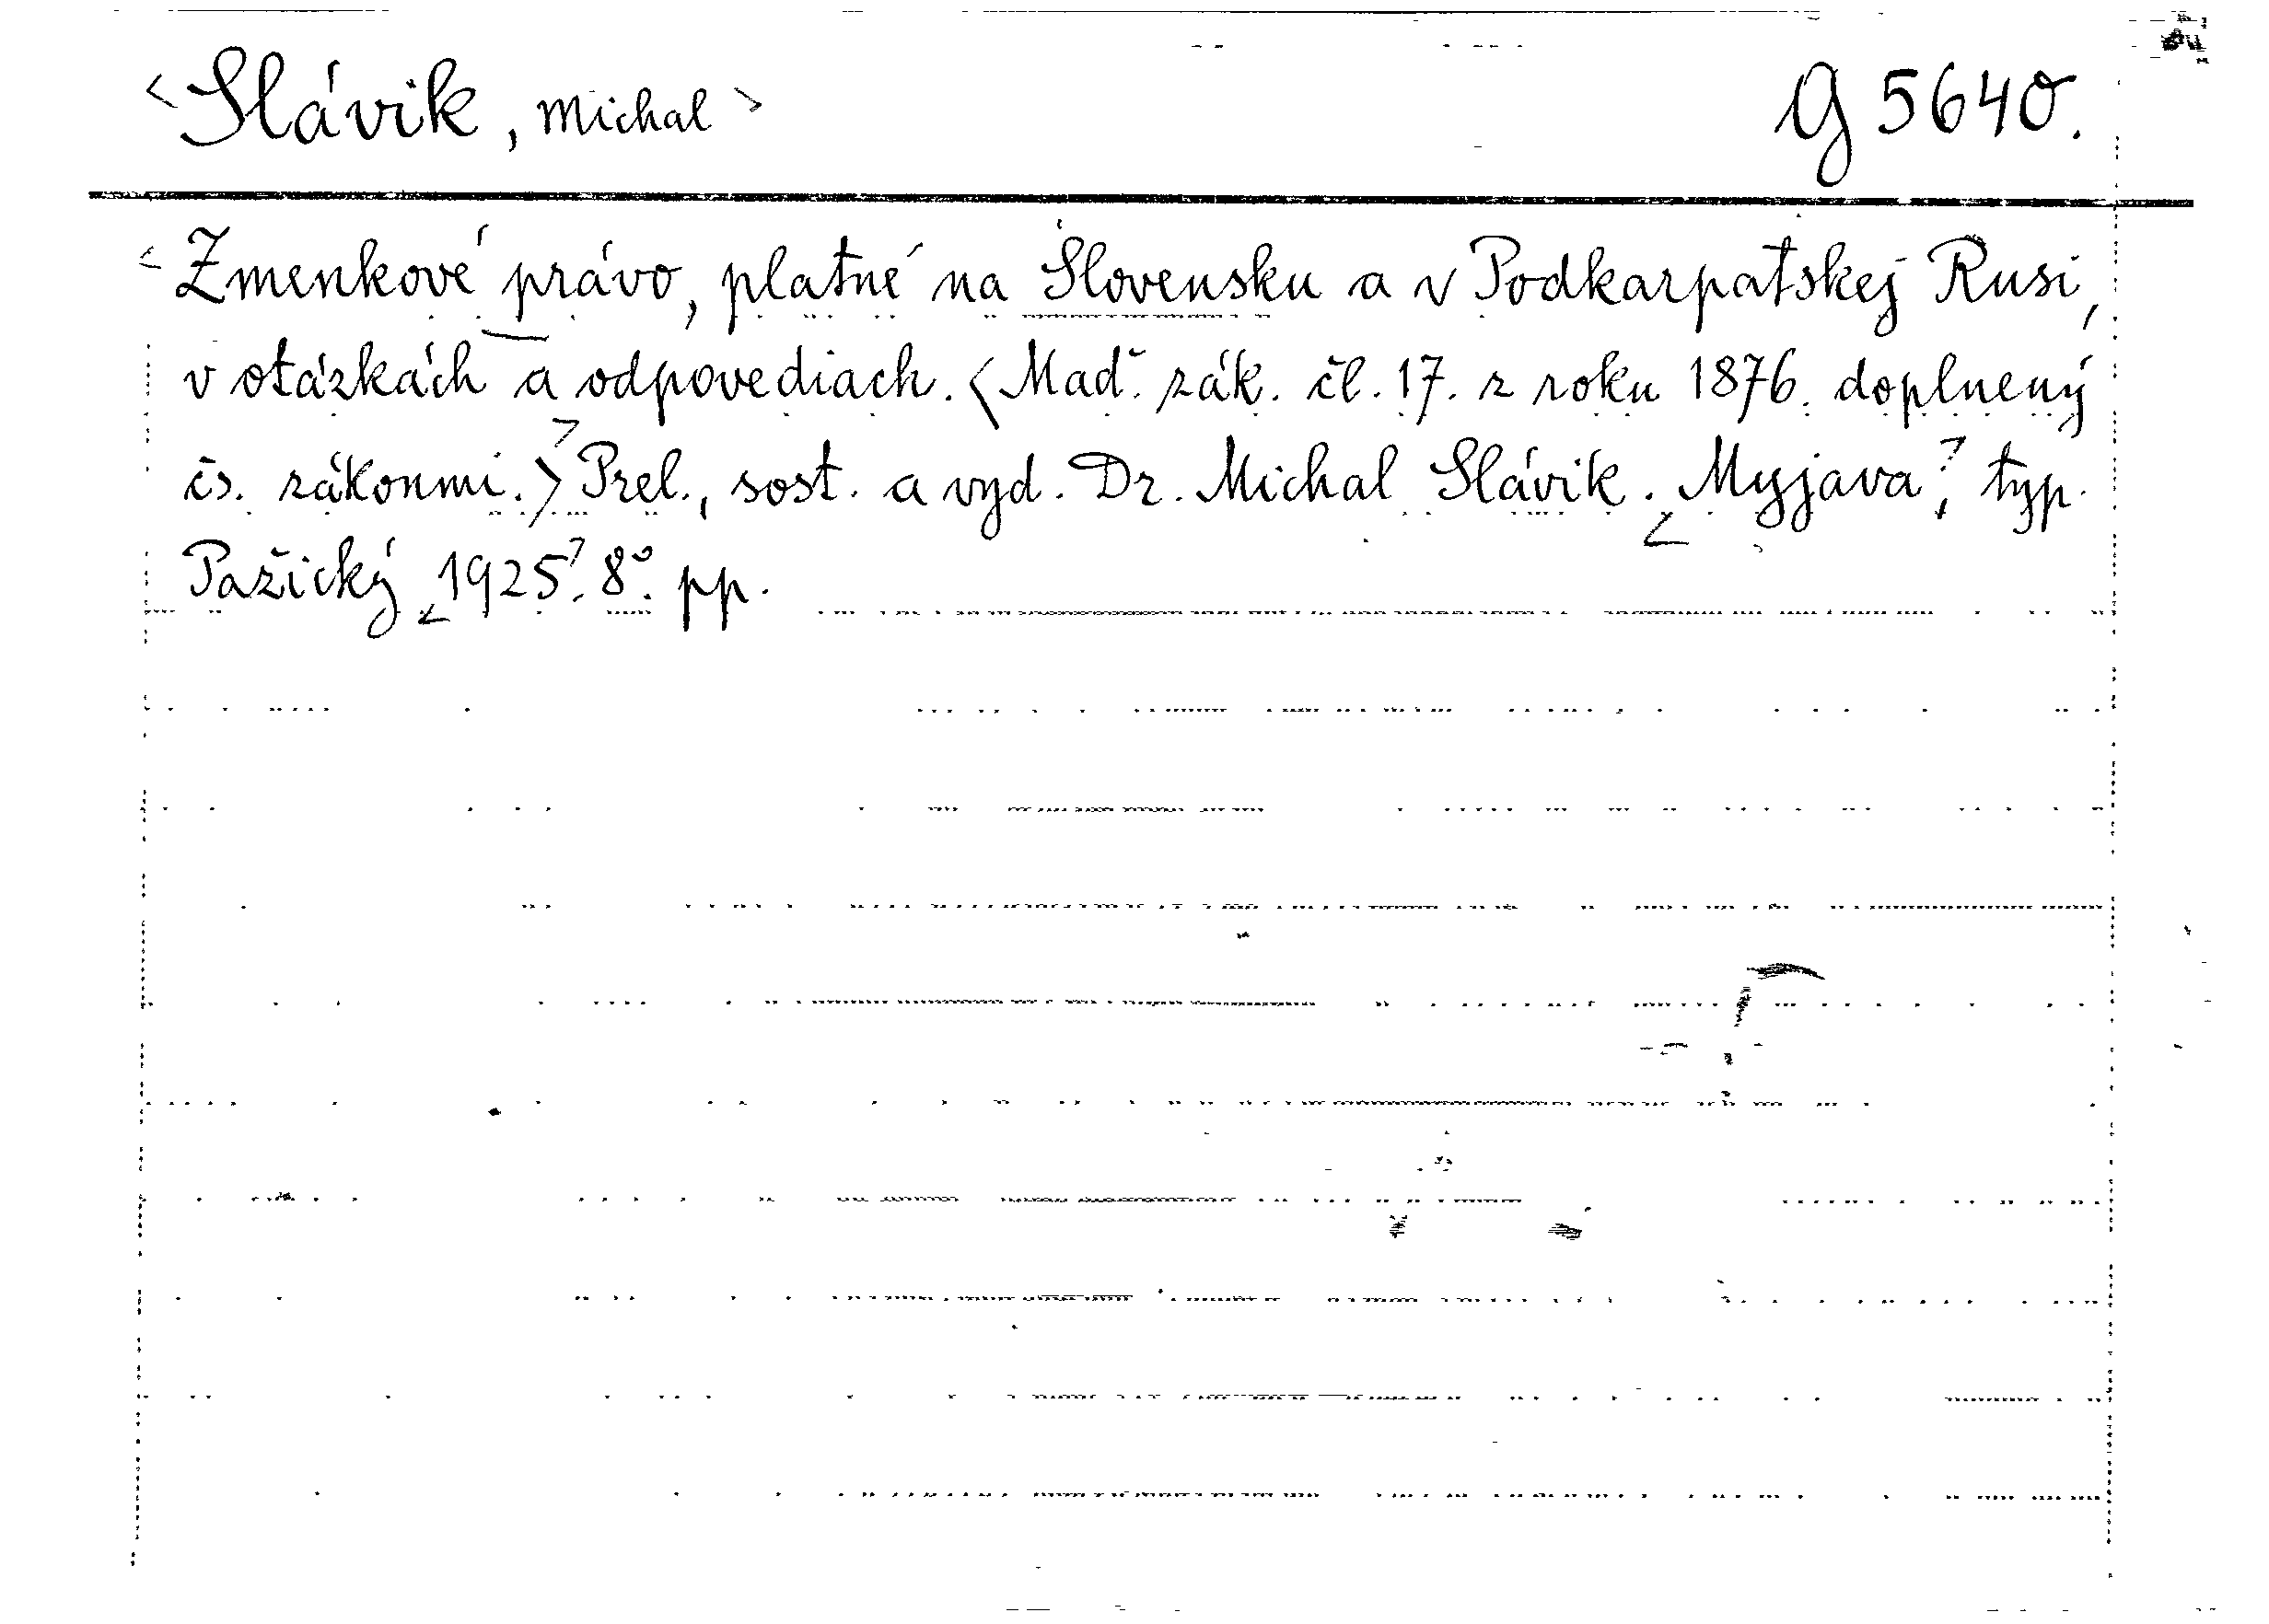 <Slávik, Michal> G 5640.
<Zmenkové právo, platné na Slovensku a v Podkarpatskej Rusi,
v otázkách a odpovediach. (Maď. zák. čl. 17. z roku 1876. doplnený
čs. zákonmi.)> Prel., sost. a vyd. Dr. Michal Slávik. <Myjava>, typ.
Pažický <1925>. 8°. pp.